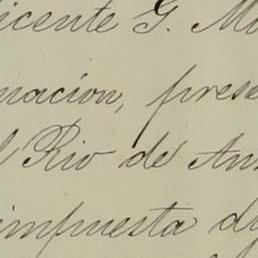 icente G. Mo
nacion, prese
l Rio de An
impuesta d